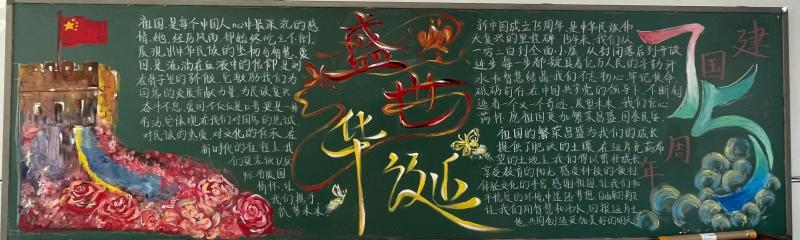 祖国是每个中国人心中最深沉的感
情,她,经历风雨,却始终屹立不倒,
展现出中华民族的坚韧与智慧,爱
国是流淌在血液中的信仰,是刻
在骨子里的骄傲,它驱动我们为
国家的发展贡献力量,为民族复兴
奋斗不息,爱国不仅仅是口号更是一种
行动,它体现在我们对国家的忠诚
对民族的热爱,对文化的传承,在
新时代的征程上,我
们更应该以实
际
我们携手
盛
世
华
诞
新中国成立75周年,是中华民族伟
大复兴的里程碑,75年来,我们从
一穷二白到全面小康,从封闭落后到开放
进步,每一步都凝聚着亿万人民的辛勤汗
水和智慧结晶,我们不忘初心,牢记使命,
砥砺前行,在中国共产党的领导下,不断创
造着一个又一个奇迹,展望未来,我们信心
满怀,愿祖国更加繁荣昌盛,国泰民安.
祖国的繁荣昌盛为我们的成长
提供了肥沃的土壤,在这片充满希
望的土地上,我们得以茁壮成长
享受教育的阳光,感受科技的便利
体验文化的丰富,感谢祖国,让我们和
平优质的环境中追逐梦想,自由翱翔
让我们用智慧和汗水,回报这片土
地,共同创造更加美好的明天
建
国
75
周
年